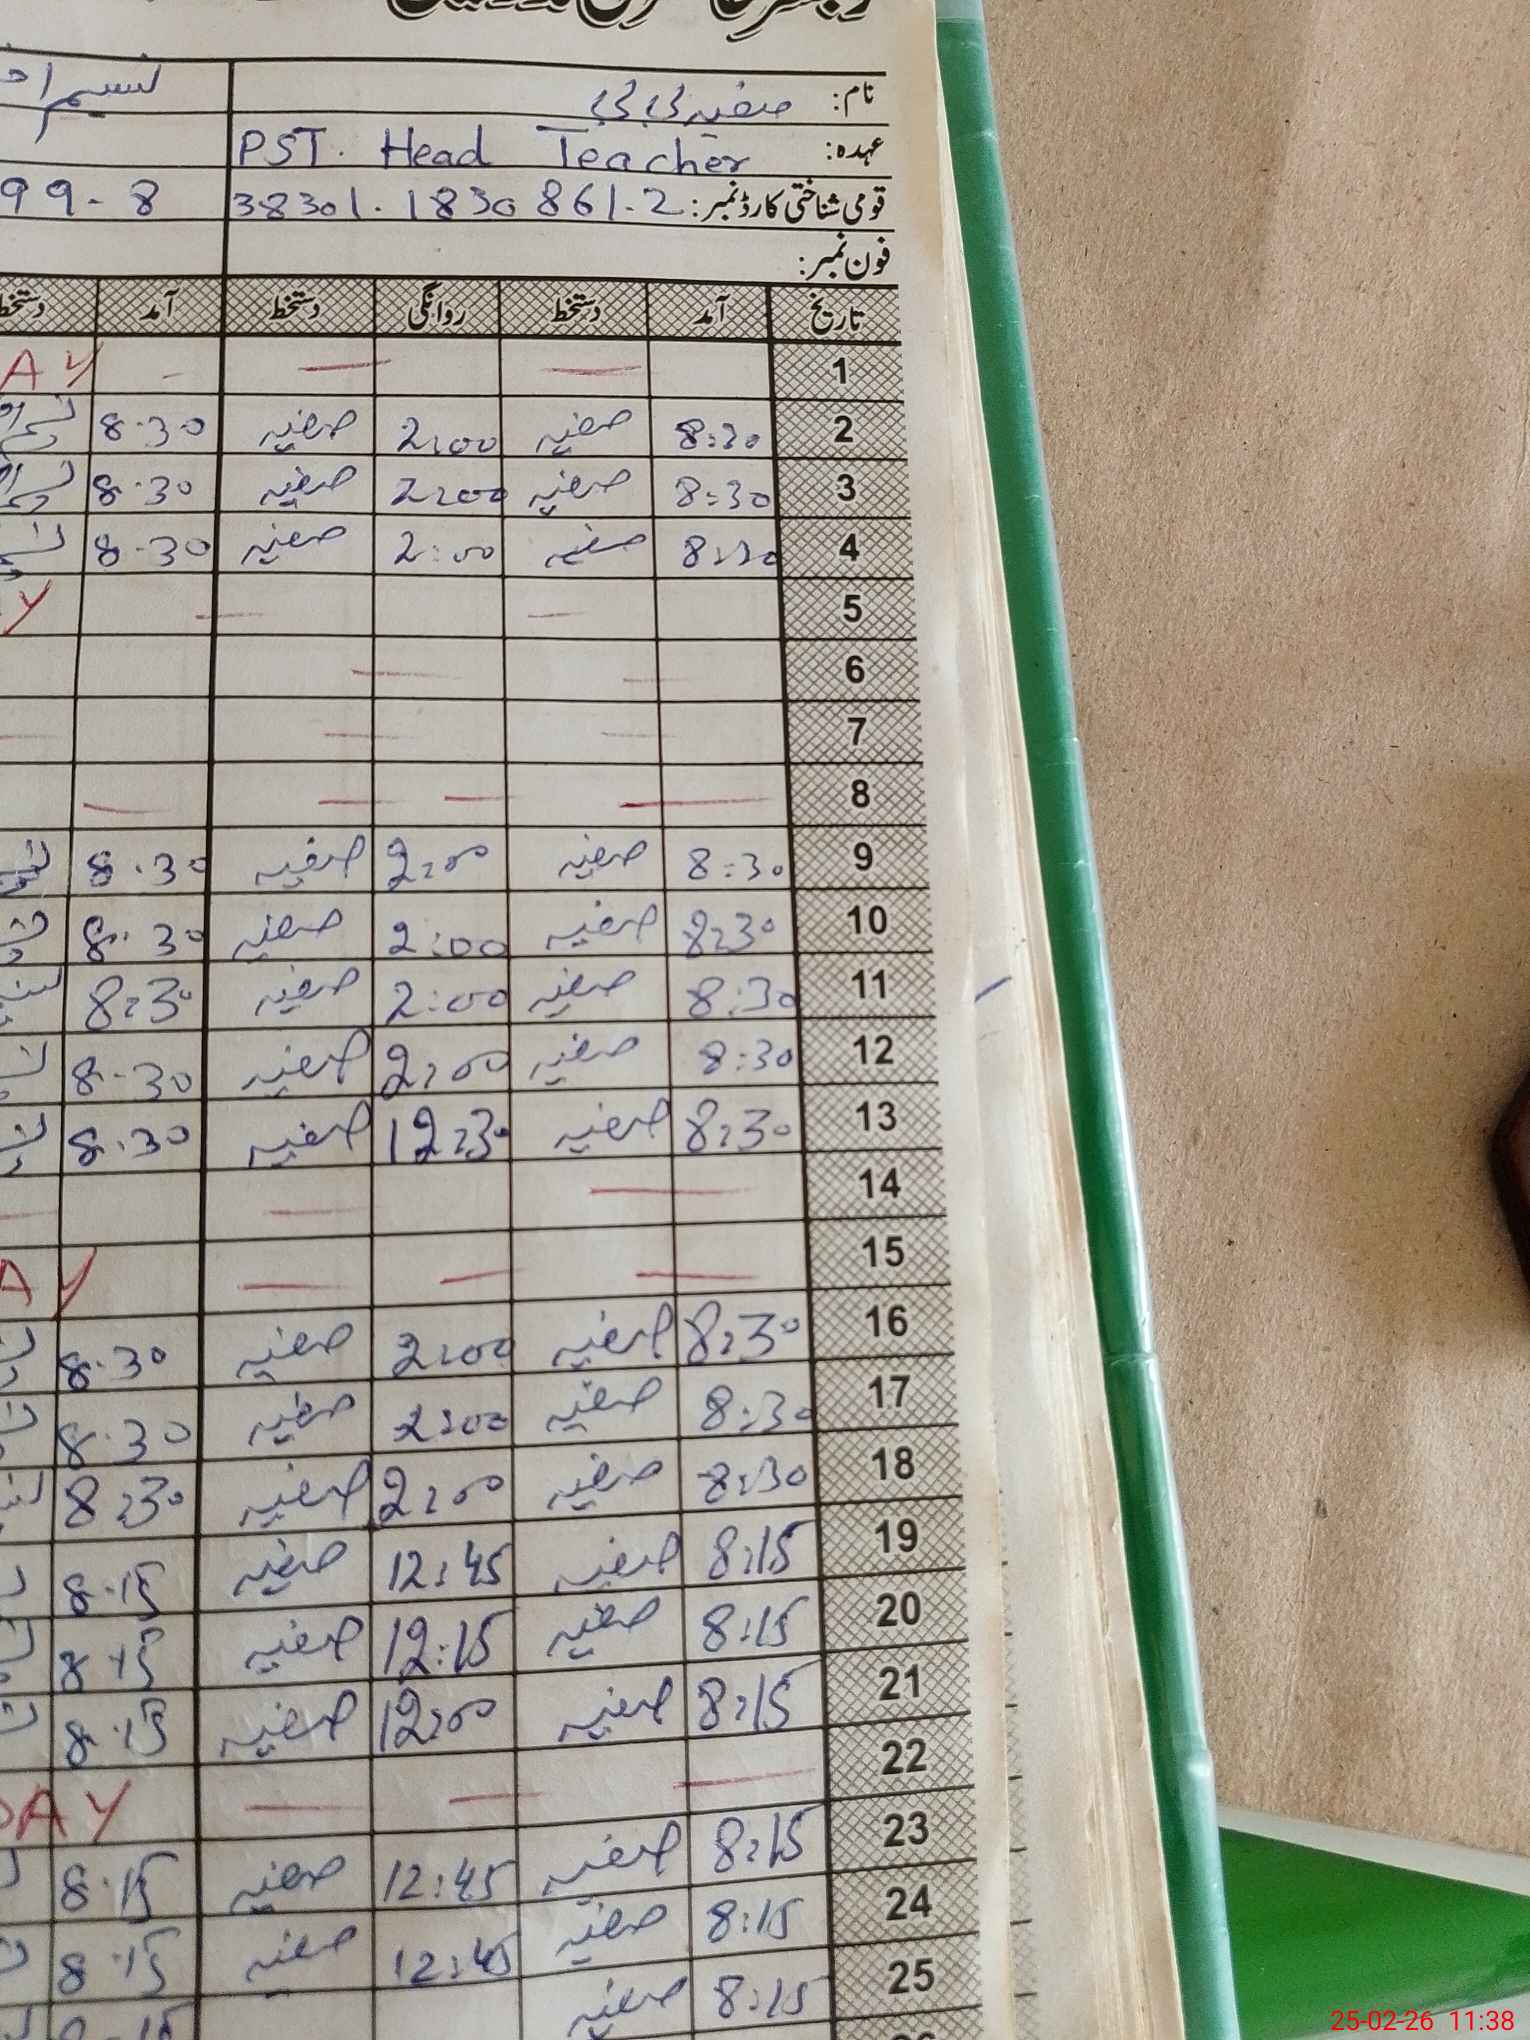 نام: صفیہ بی بی نسیم
عہدہ: PST. Head Teacher
قومی شناختی کارڈ نمبر: 38301.1830861-2 99-8
فون نمبر:
تاریخ آمد دستخط روانگی دستخط آمد دستخط
1 AY
2 8:30 صفیہ 2:00 صفیہ 8.30
3 8:30 صفیہ 2:00 صفیہ 8.30
4 8:30 صفیہ 2:00 صفیہ 8.30
5 Y
6
7
8
9 8:30 صفیہ 2:00 صفیہ 8.30
10 8:30 صفیہ 2:00 صفیہ 8.30
11 8:30 صفیہ 2:00 صفیہ 8:30
12 8:30 صفیہ 2:00 صفیہ 8.30
13 8:30 صفیہ 12:30 صفیہ 8.30
14
15 AY
16 8:30 صفیہ 2:00 صفیہ 8.30
17 8:30 صفیہ 2:00 صفیہ 8.30
18 8:30 صفیہ 2:00 صفیہ 8:30
19 8:15 صفیہ 12:45 صفیہ 8.15
20 8:15 صفیہ 12:15 صفیہ 8.15
21 8:15 صفیہ 12:00 صفیہ 8.15
22 DAY
23 8:15 صفیہ 12:45 صفیہ 8.15
24 8:15 صفیہ 12:45 صفیہ 8.15
25 8:15 صفیہ
25-02-26 11:38